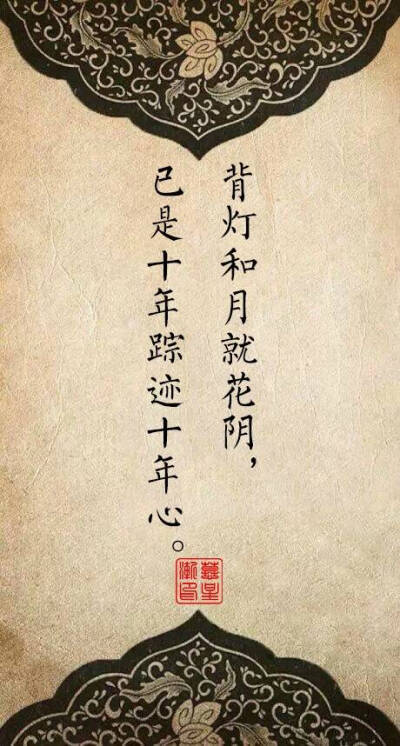 背灯和月就花阴，
已是十年踪迹十年心。